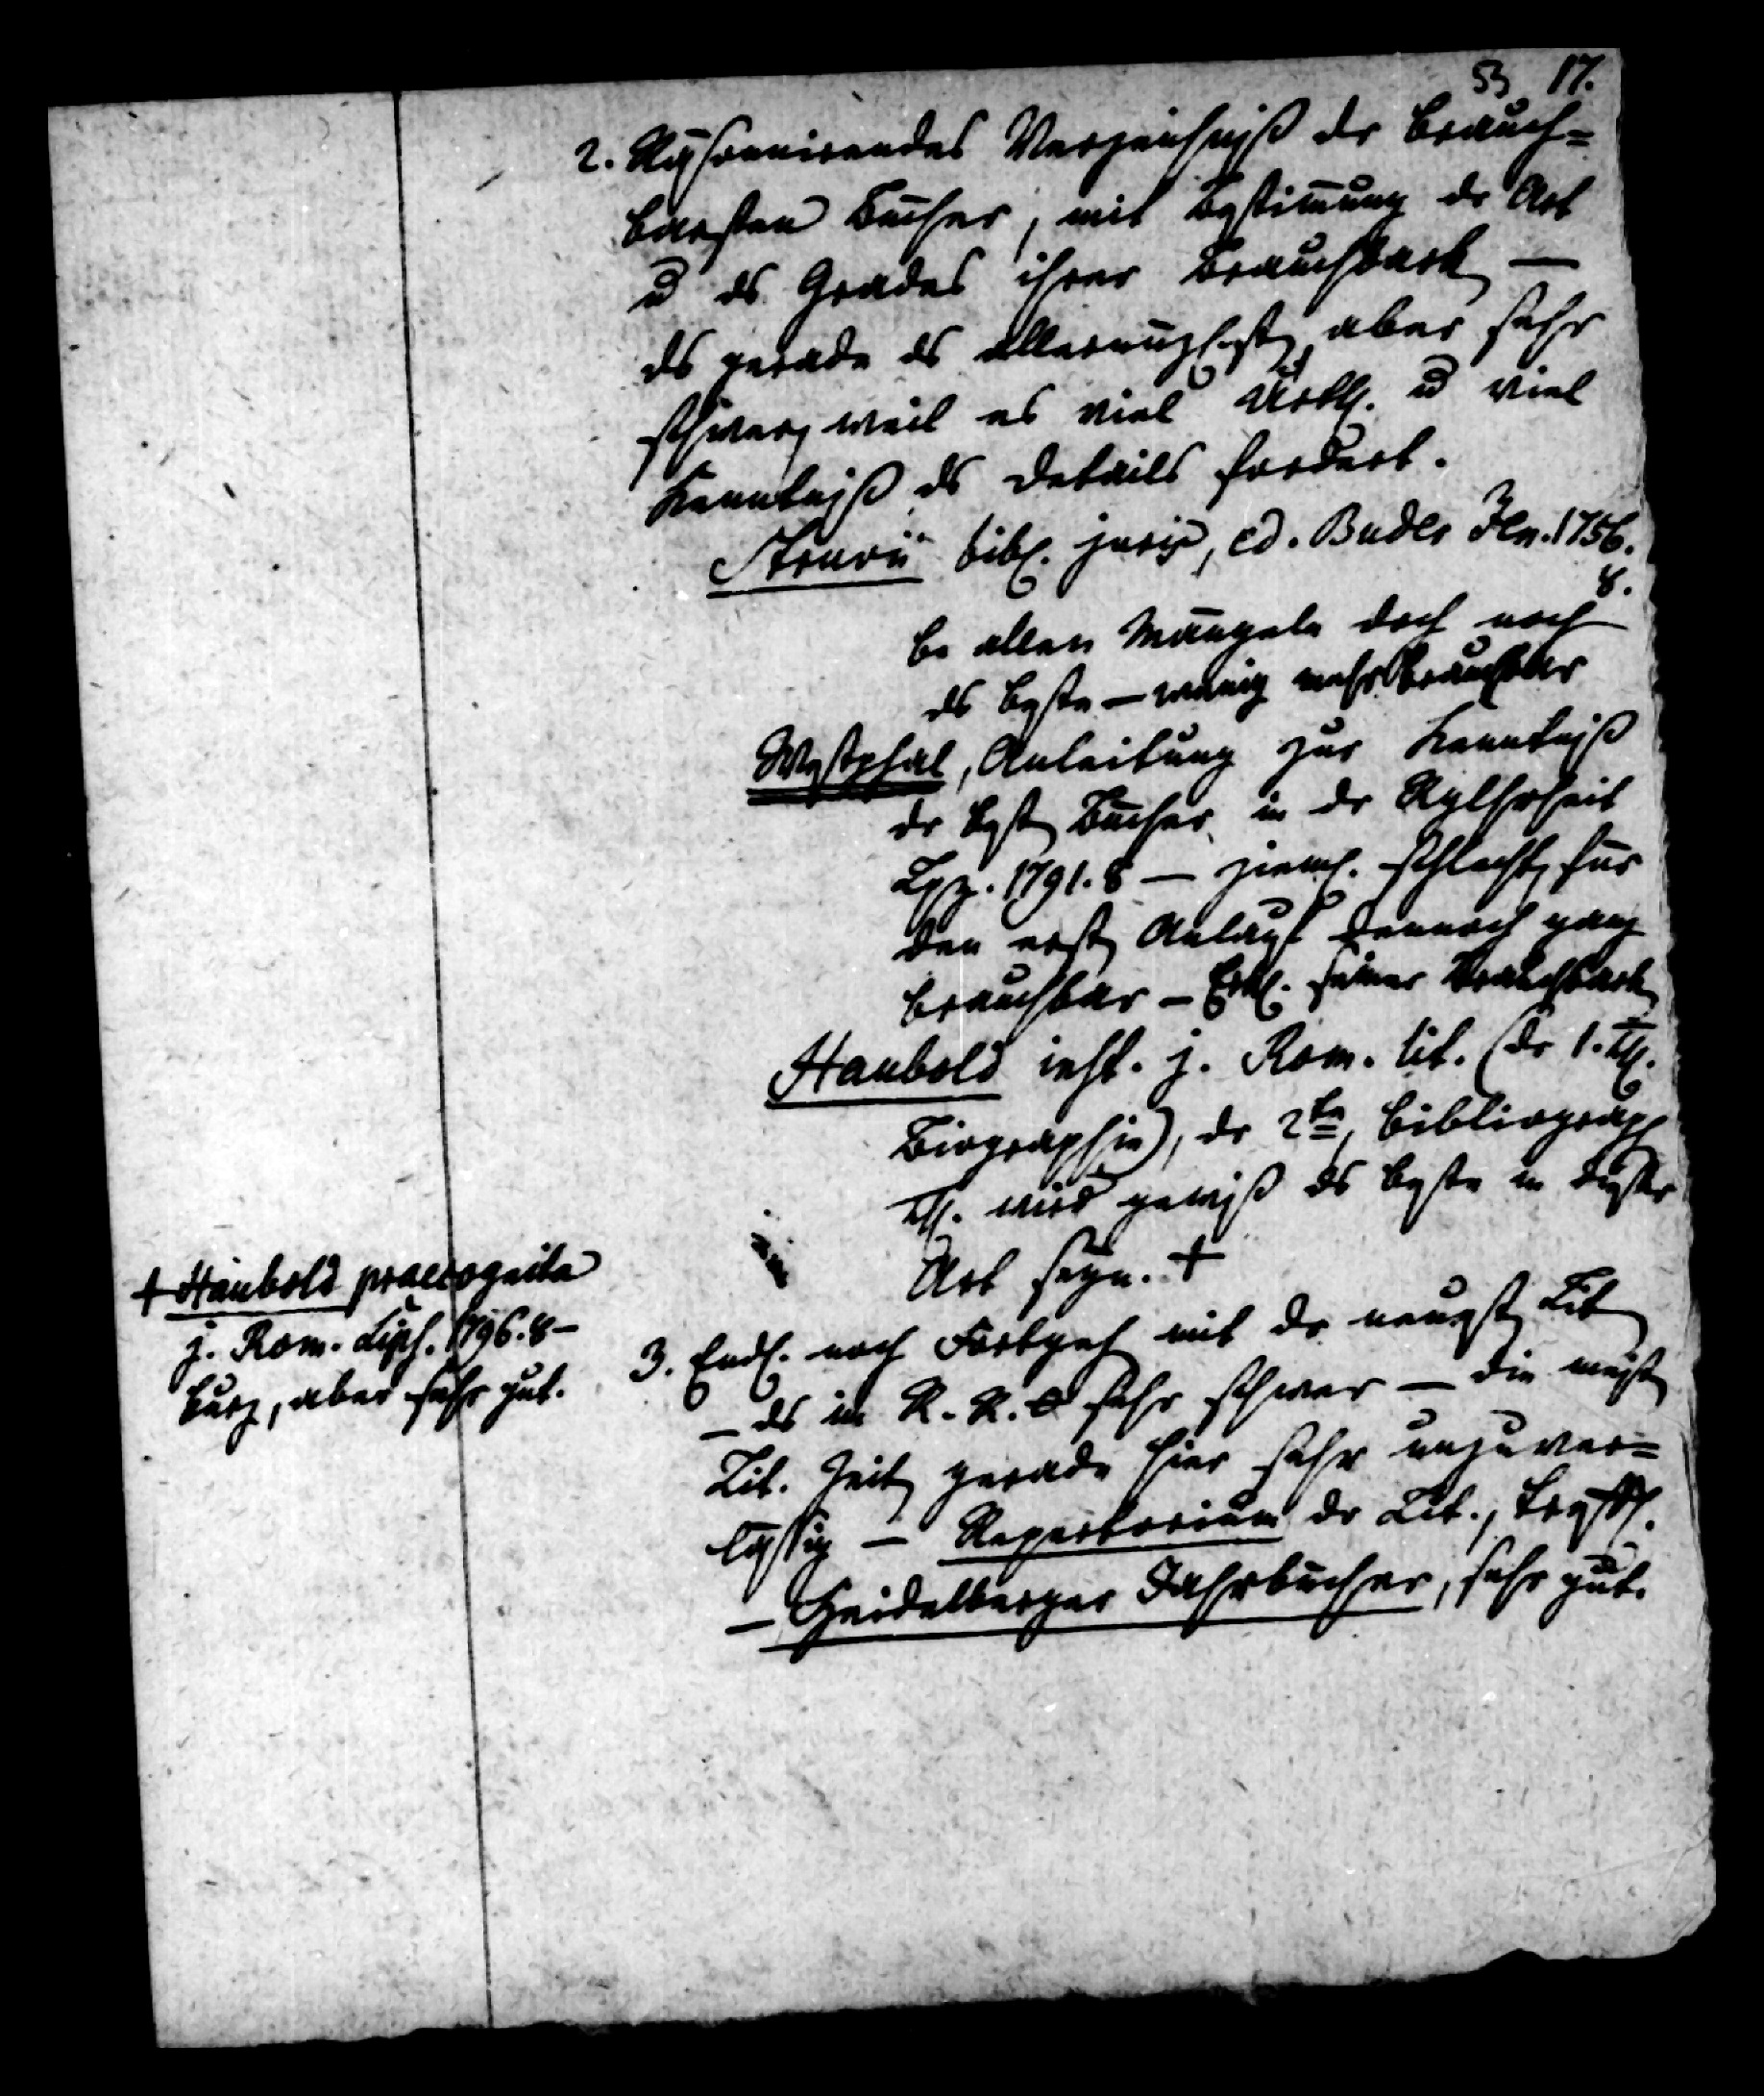 53 17.
2. Räsonnirendes Verzeichniß dr brauch=
barsten Bücher, mit Bestimung dr Art
u ds Grades ihrer Brauchbark —
ds gerade ds allernüzlichst, aber sehr
schwer, weil es viel Urth. u viel
Kenntniß ds Details fordert.
Struvii bibl. juris, ed. Buder Jen. 1756.
8.
be allen Mängeln doch noch
ds beste — wenig mehr brauchbar
Westphal, Anleitung zur Kenntniß
dr best Bücher in dr Rglhrheit
Lpz. 1791. 8 — zieml. schlecht, für
den erst Anlauf dennoch ganz
brauchbar — Erkl. seiner Brauchbark
Haubold inst. j. Rom. lit. (dr 1. Th.
Biographie), dr 2te, bibliograph
Th. wird gewiß ds beste in dieser
Art seyn. +
+ Haubold praecognita
j. Rom. Lips. 1796. 8 —
kurz, aber sehr gut.
3. Endl. noch Fortgeh mit dr neuest Lit
— ds in R. R. sehr schwer — die meist
Lit. Zeit gerade hier sehr unzuver=
lässig — Repertorium dr Lit.,
— Heidelberger Jahrbücher, sehr gut.